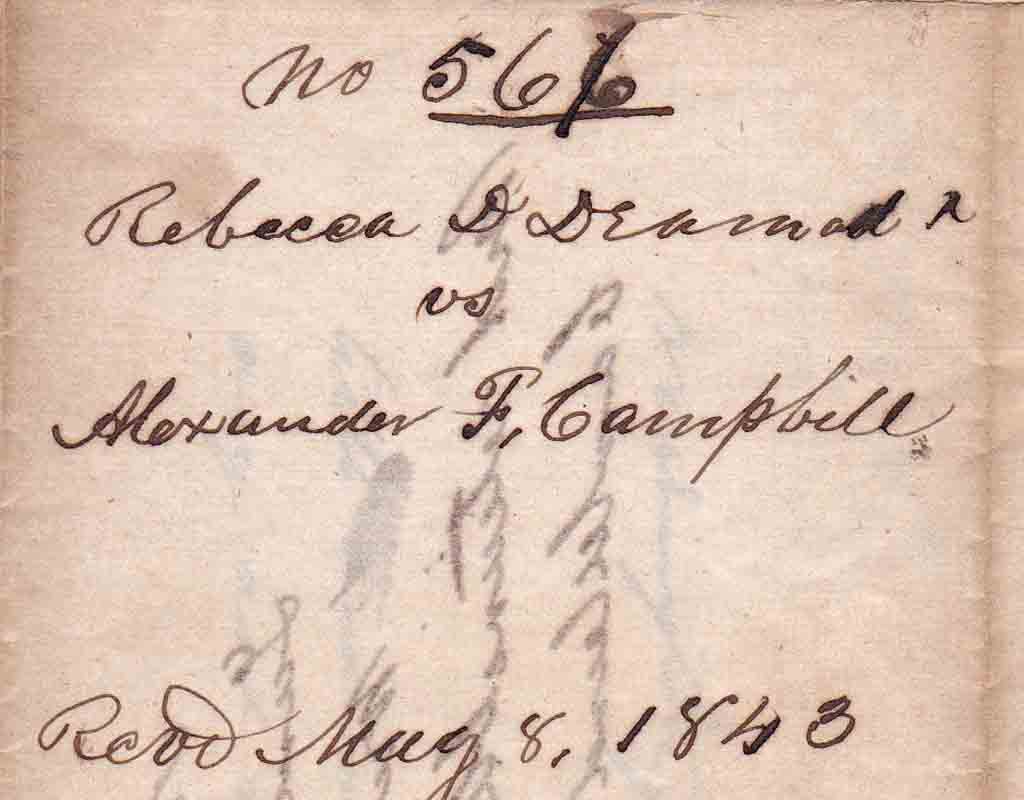 No 566
Rebecca D
vs
Alexander F. Campbell
Recd May 8, 1843